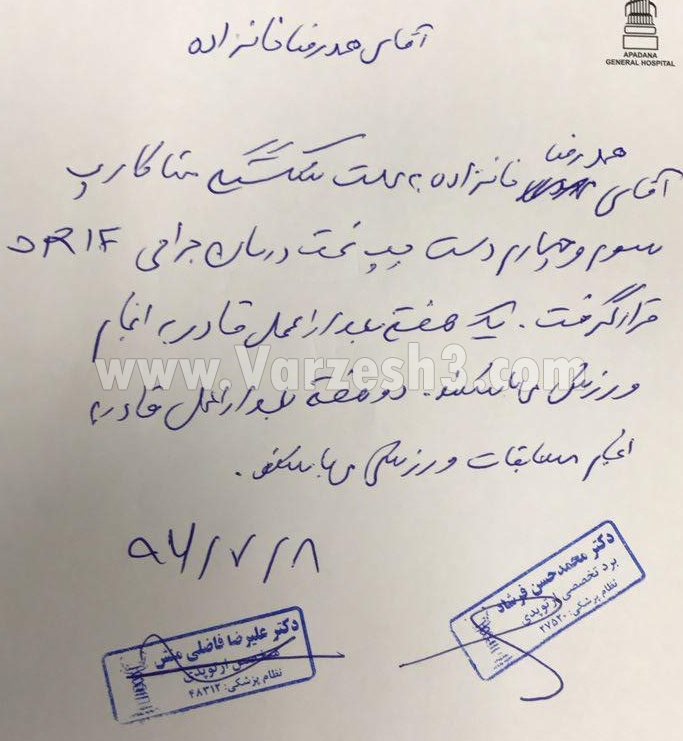 APADANA
GENERAL HOSPITAL
آقای محمدرضا خانزاده
محمدرضا
آقای خانزاده به علت شکستگی متاکارپ
سوم و چهارم دست چپ تحت درمان جراحی ORIF
قرار گرفت. یک هفته بعد از عمل قادر به انجام
www.Varzesh3.com
ورزش می‌باشند. دو هفته بعد از عمل قادر به
انجام مسابقات ورزشی می‌باشند.
۹۶/۷/۸
دکتر محمدحسن فرشاد
برد تخصصی ارتوپدی
نظام پزشکی: ۲۷۵۲۰
دکتر علیرضا فاضلی منش
متخصص ارتوپدی
نظام پزشکی: ۴۸۳۱۲